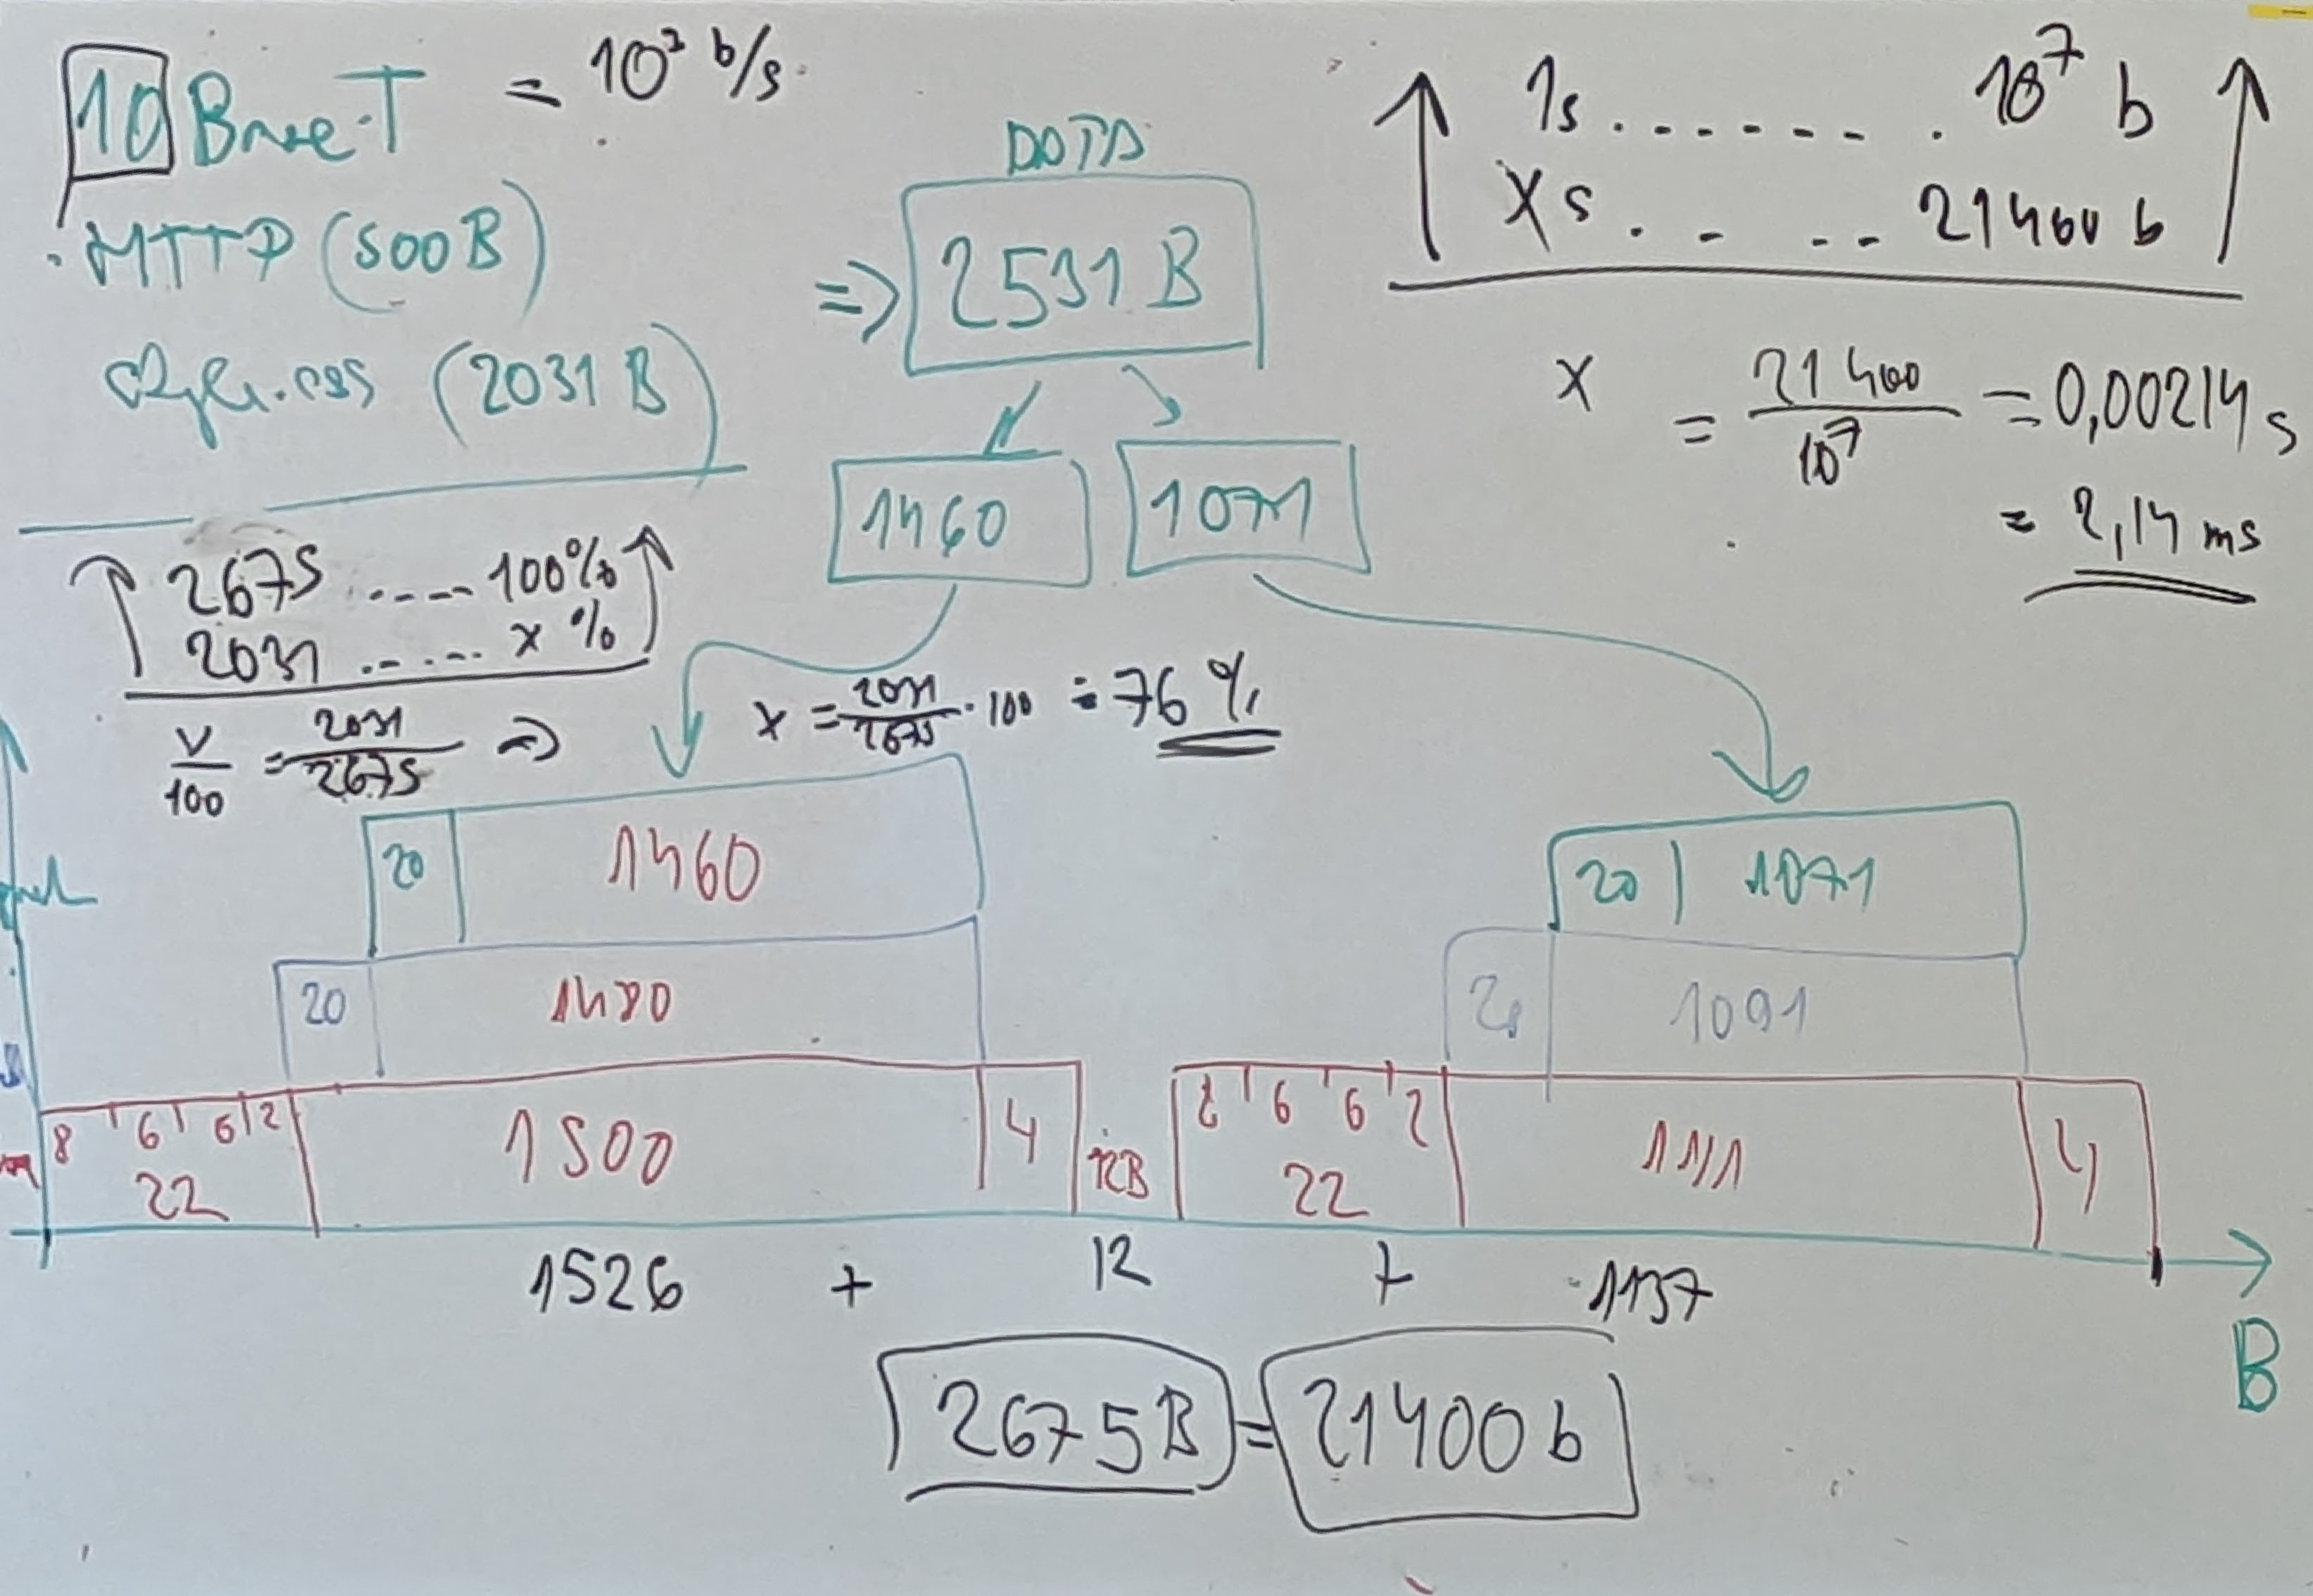 10 Base-T = 10⁷ b/s
HTTP (500B)
style.css (2031 B)
DATA
=> 2531 B
1460 1071
1s . . . . . . . 10⁷ b
X s . . . . . 21400 b
x = 21400 / 10⁷ = 0,00214 s
= 2,14 ms
2675 ..... 100%
2031 ..... x %
x/100 = 2031/2675 => x = 2031/2675 · 100 = 76 %
20 1460
20 1480
8 6 6 2
22 1500 4
12B
20 1071
20 1091
8 6 6 2
22 1111 4
1526 + 12 + 1137
B
2675 B = 21400 b